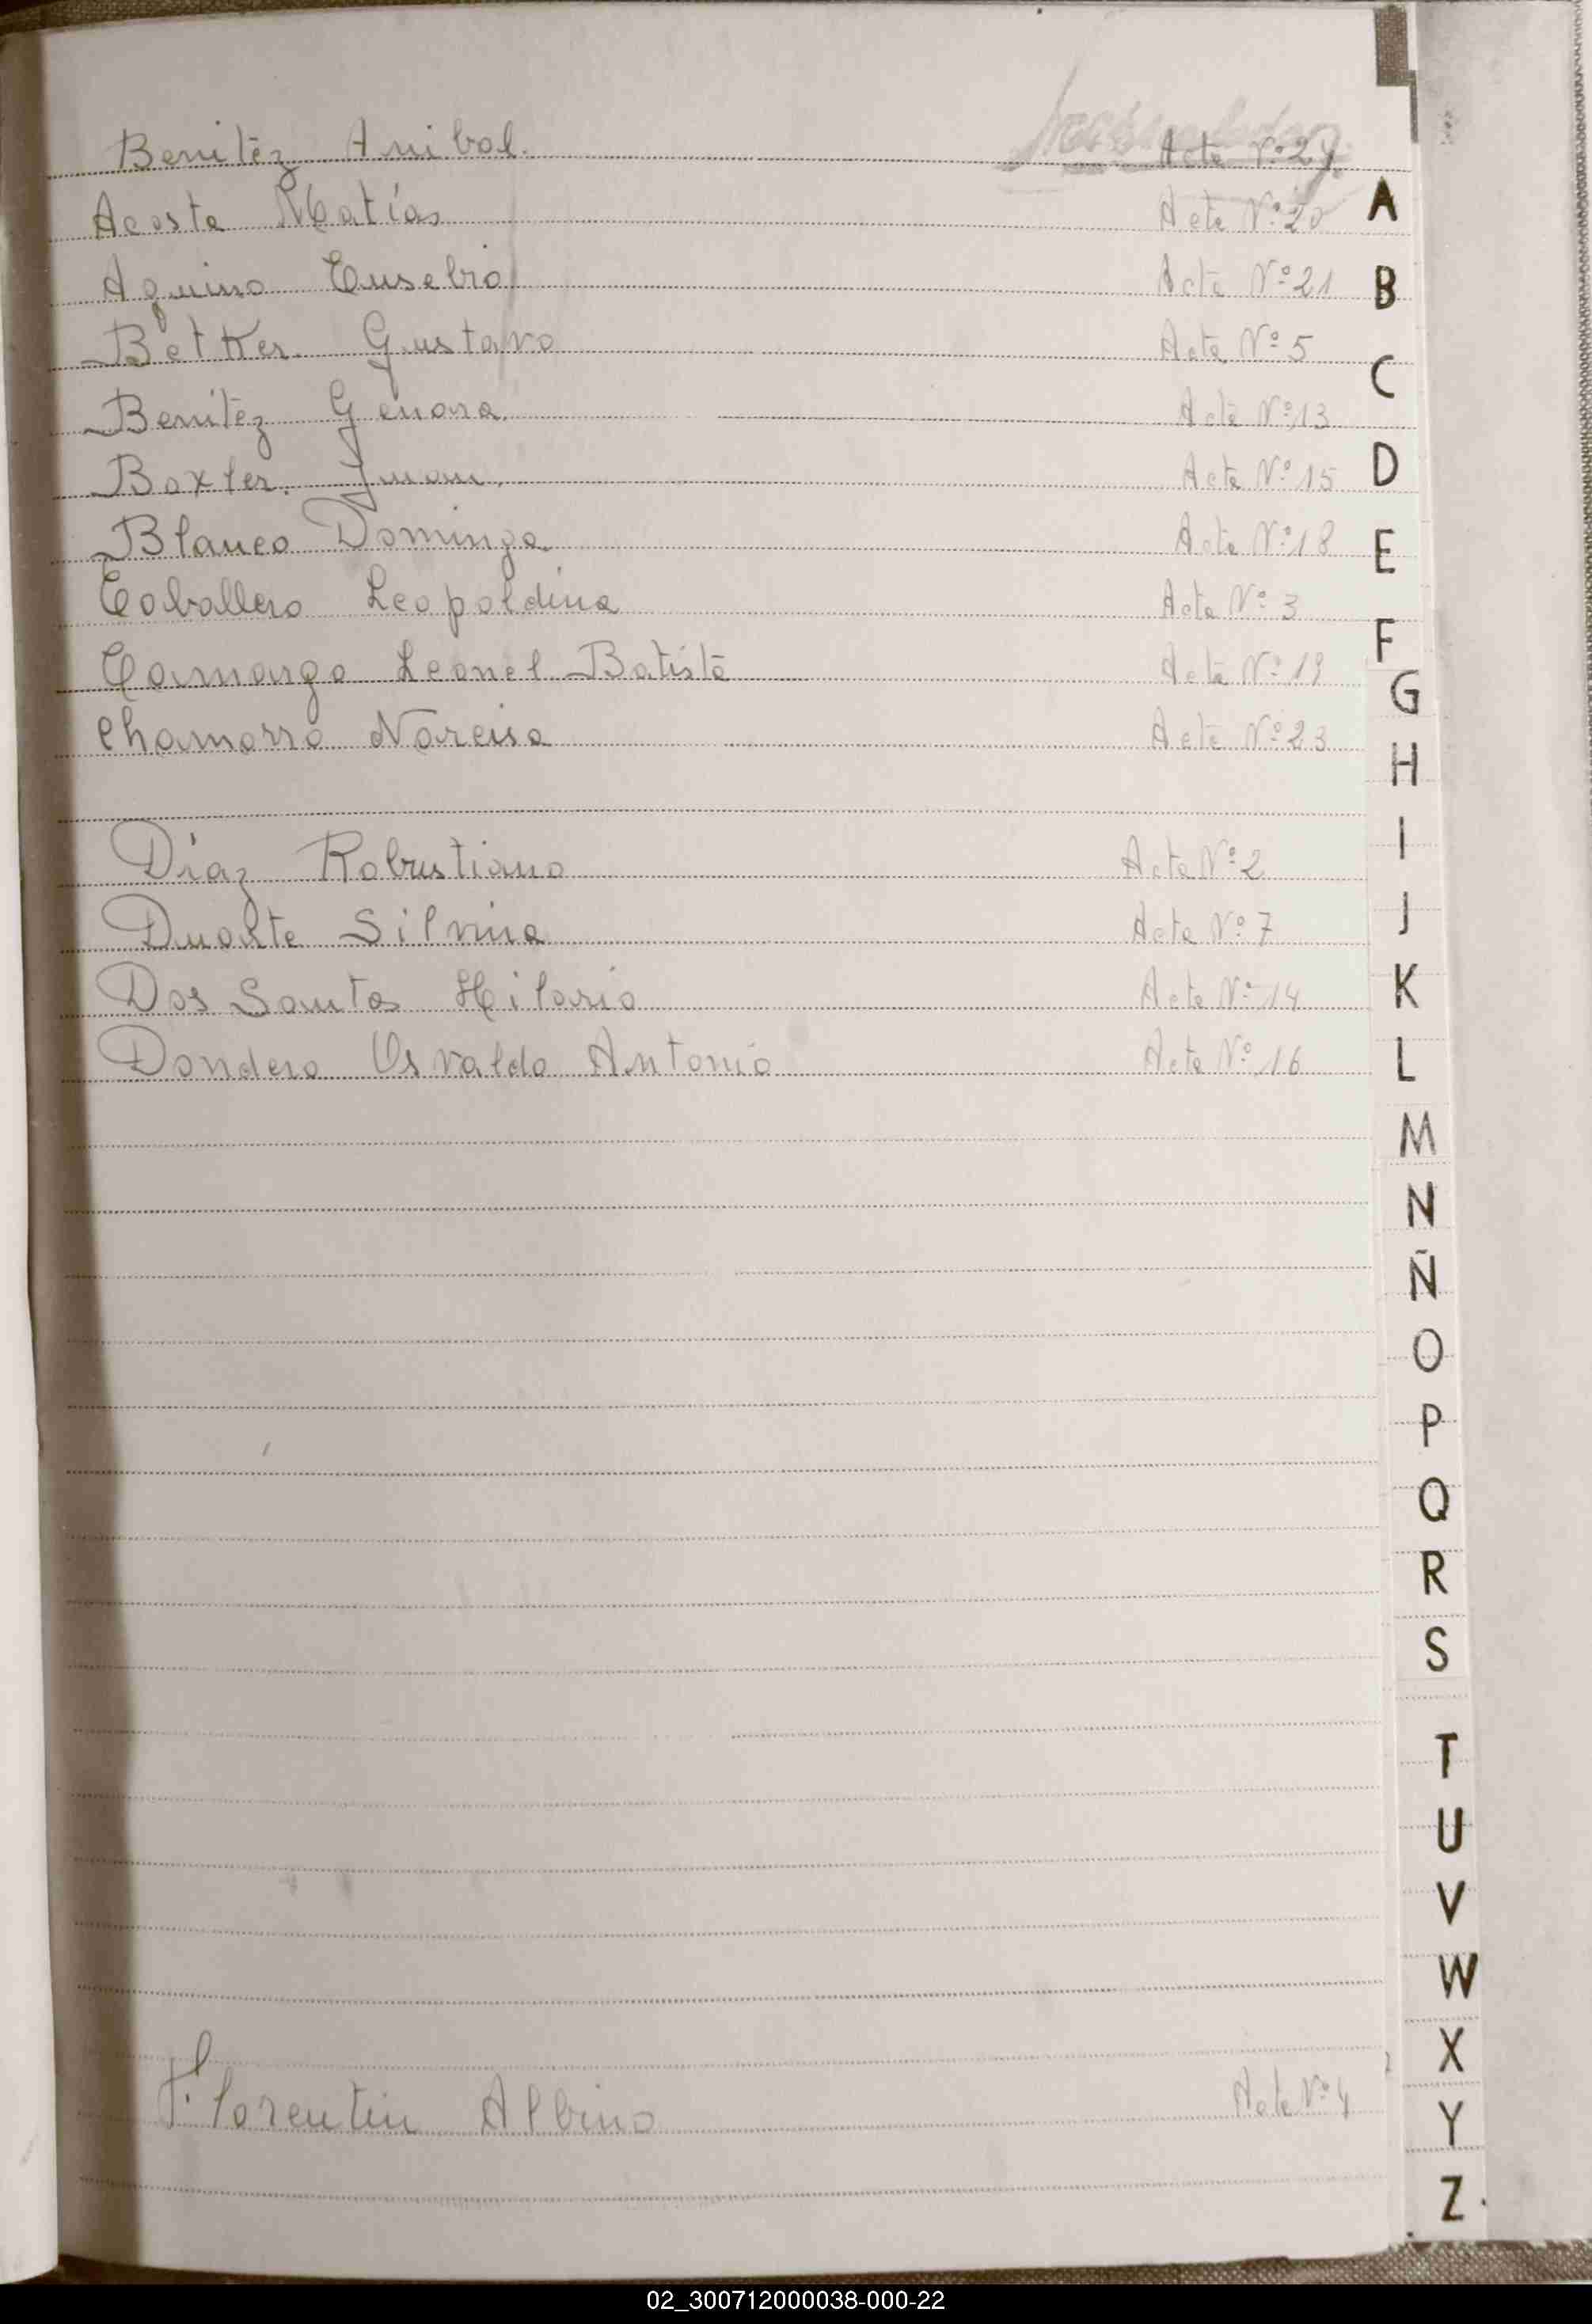 Benitez Anibal. Acta Nº 24
Acosta Matías Acta Nº 20
Aquino Eusebio Acta Nº 21
Betker. Gustavo Acta Nº 5
Benitez Genara. Acta Nº 13
Boxler. Juan. Acta Nº 15
Blanco Dominga Acta Nº 18
Caballero Leopoldina Acta Nº 3
Camargo Leonel Batista Acta Nº 19
Chamorro Narcisa Acta Nº 23
Díaz Robustiano Acta Nº 2
Duarte Silvina Acta Nº 7
Dos Santos Hilario Acta Nº 14
Dondero Osvaldo Antonio Acta Nº 16
Florentin Albino Acta Nº 4
A
B
C
D
E
F
G
H
I
J
K
L
M
N
Ñ
O
P
Q
R
S
T
U
V
W
X
Y
Z
02_300712000038-000-22